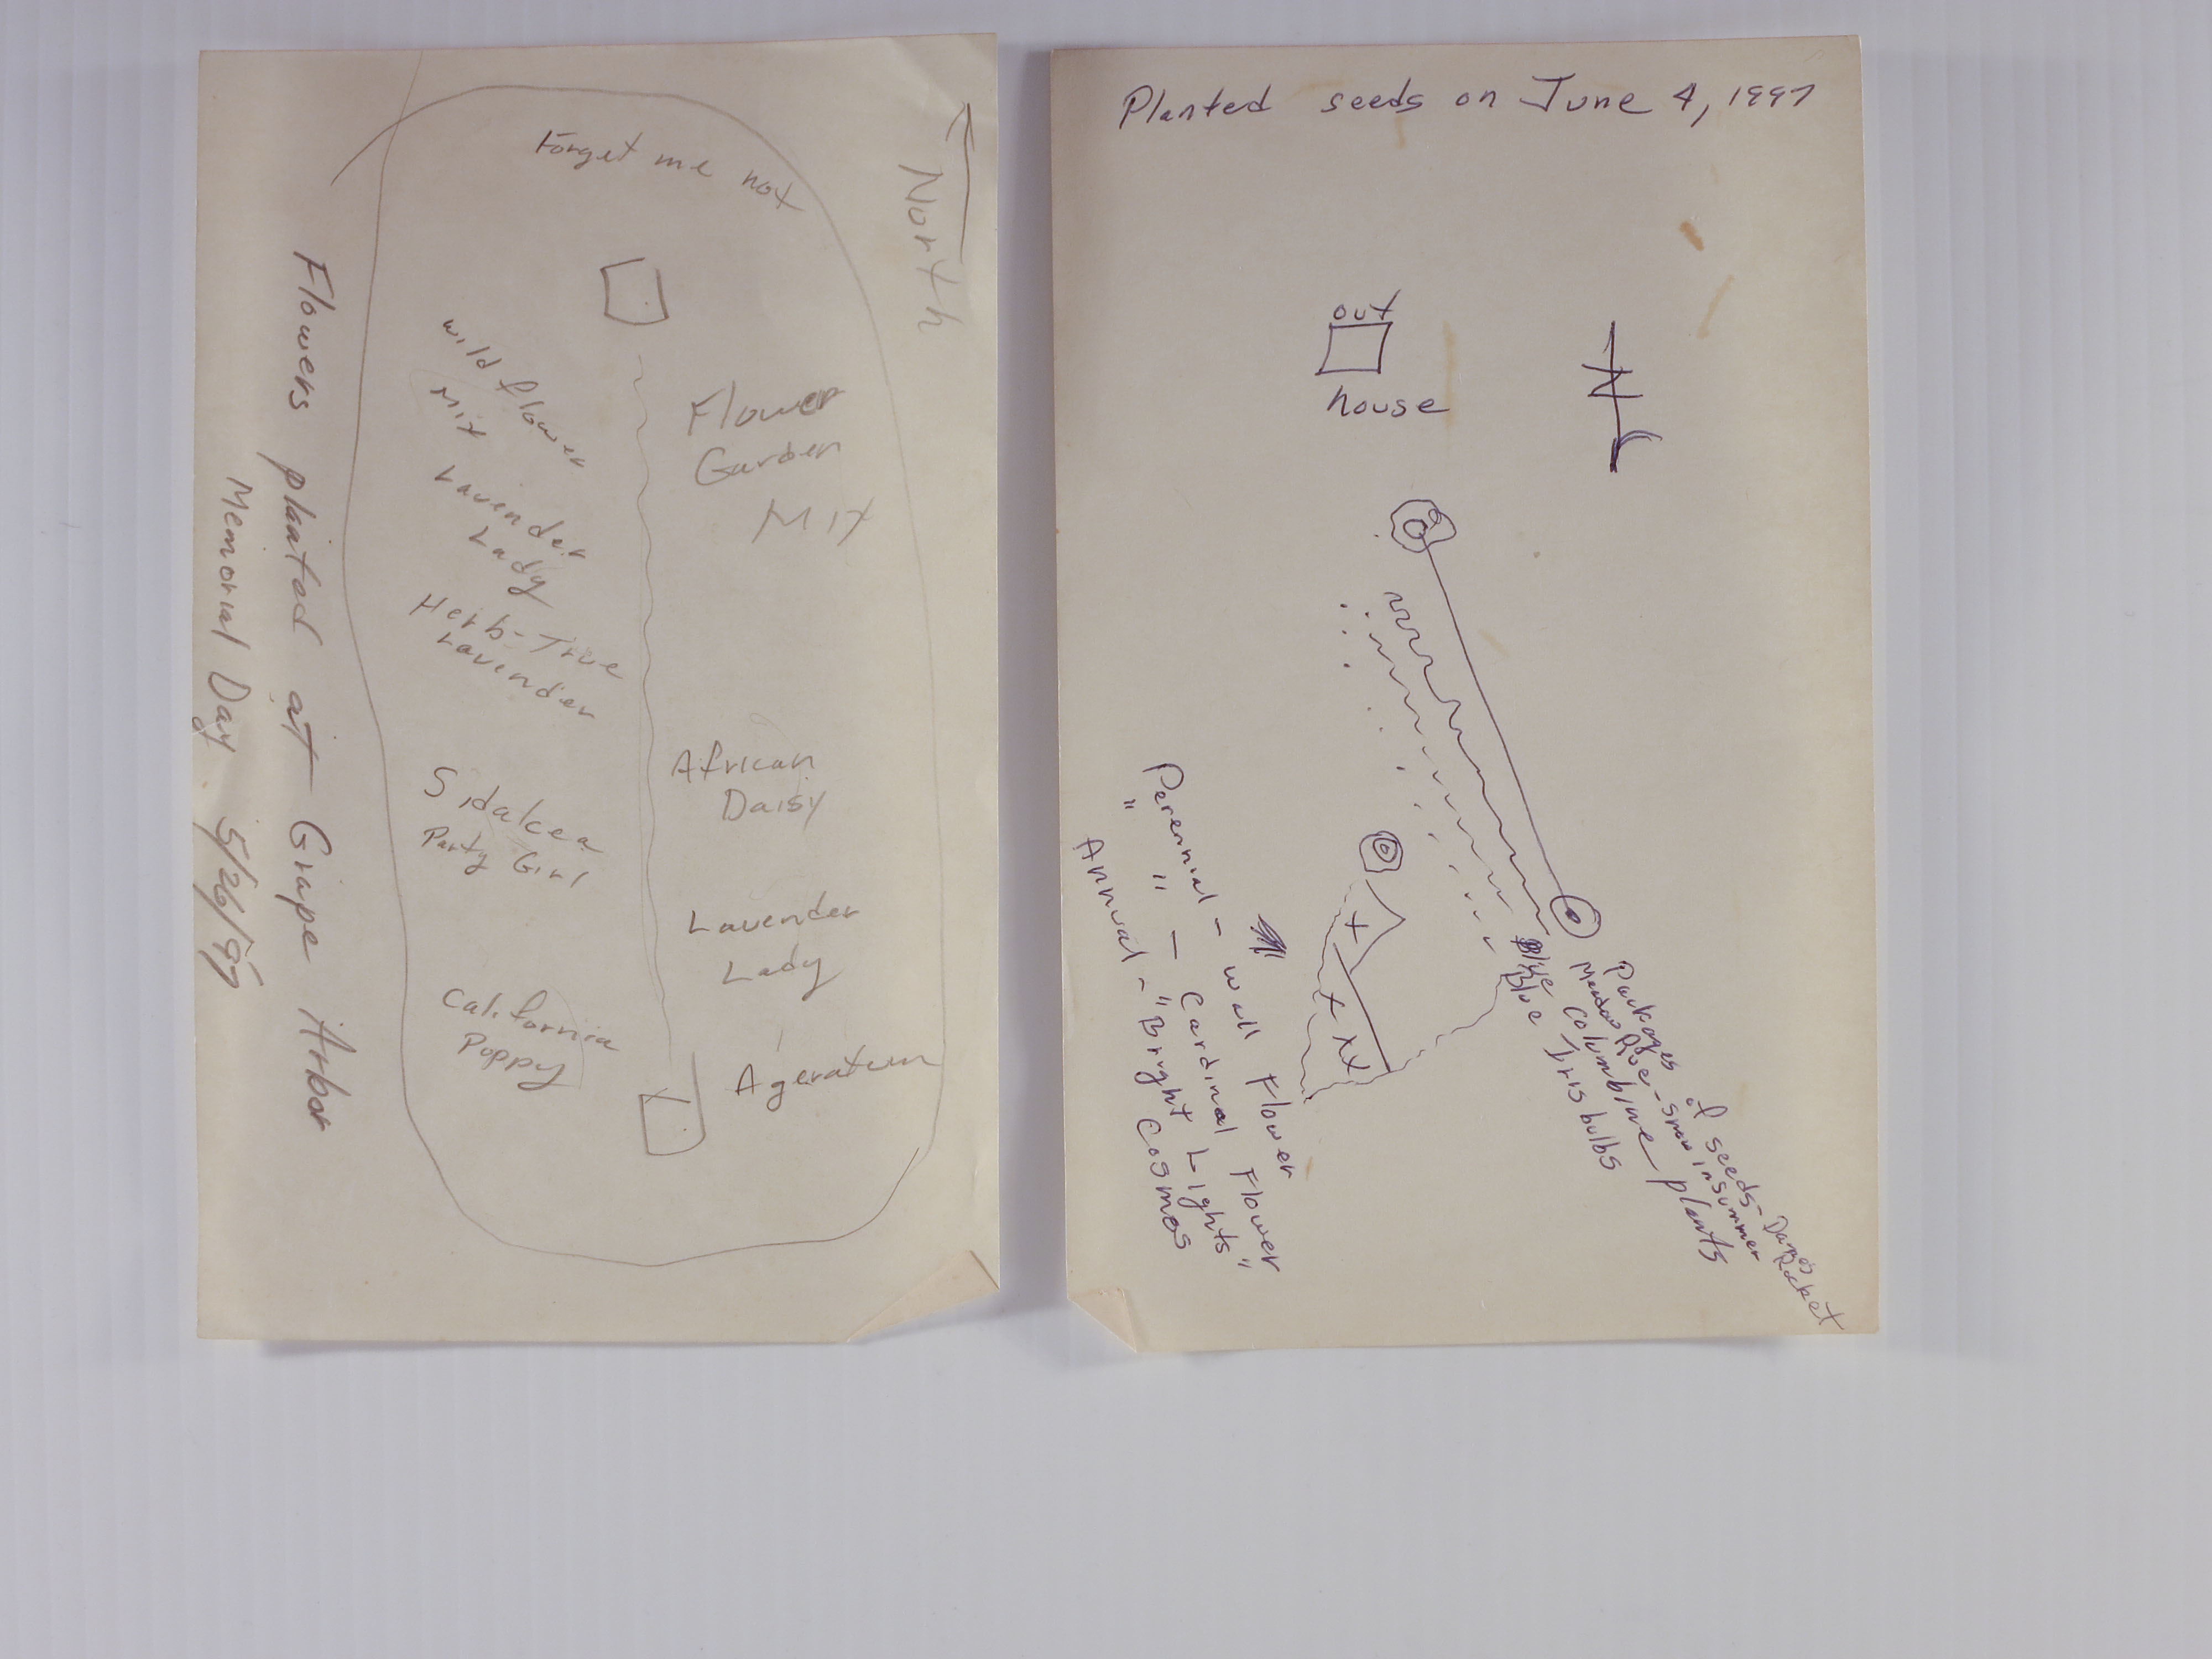 North
Forget me not
wild flower
Mix
Flower
Garden
Mix
Lavender
Lady
Herb-True
Lavender
African
Daisy
Sidalcea
Party Girl
Lavender
Lady
California
Poppy
Ageratum
Flowers planted at Grape Arbor
Memorial Day 5/26/97
Planted seeds on June 4, 1997
out
house
N
Packages of seeds - Dames Rocket
Meadow Rue - snow in summer
Columbine plants
Blue Iris bulbs
Perennial - wall Flower
" " - Cardinal Flower
Annual - "Bright Lights"
Cosmos